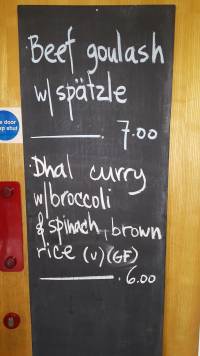 Beef goulash
w/ spätzle
7.00
Dhal curry
w/ broccoli
& spinach, brown
rice (v) (GF)
6.00
door
shut